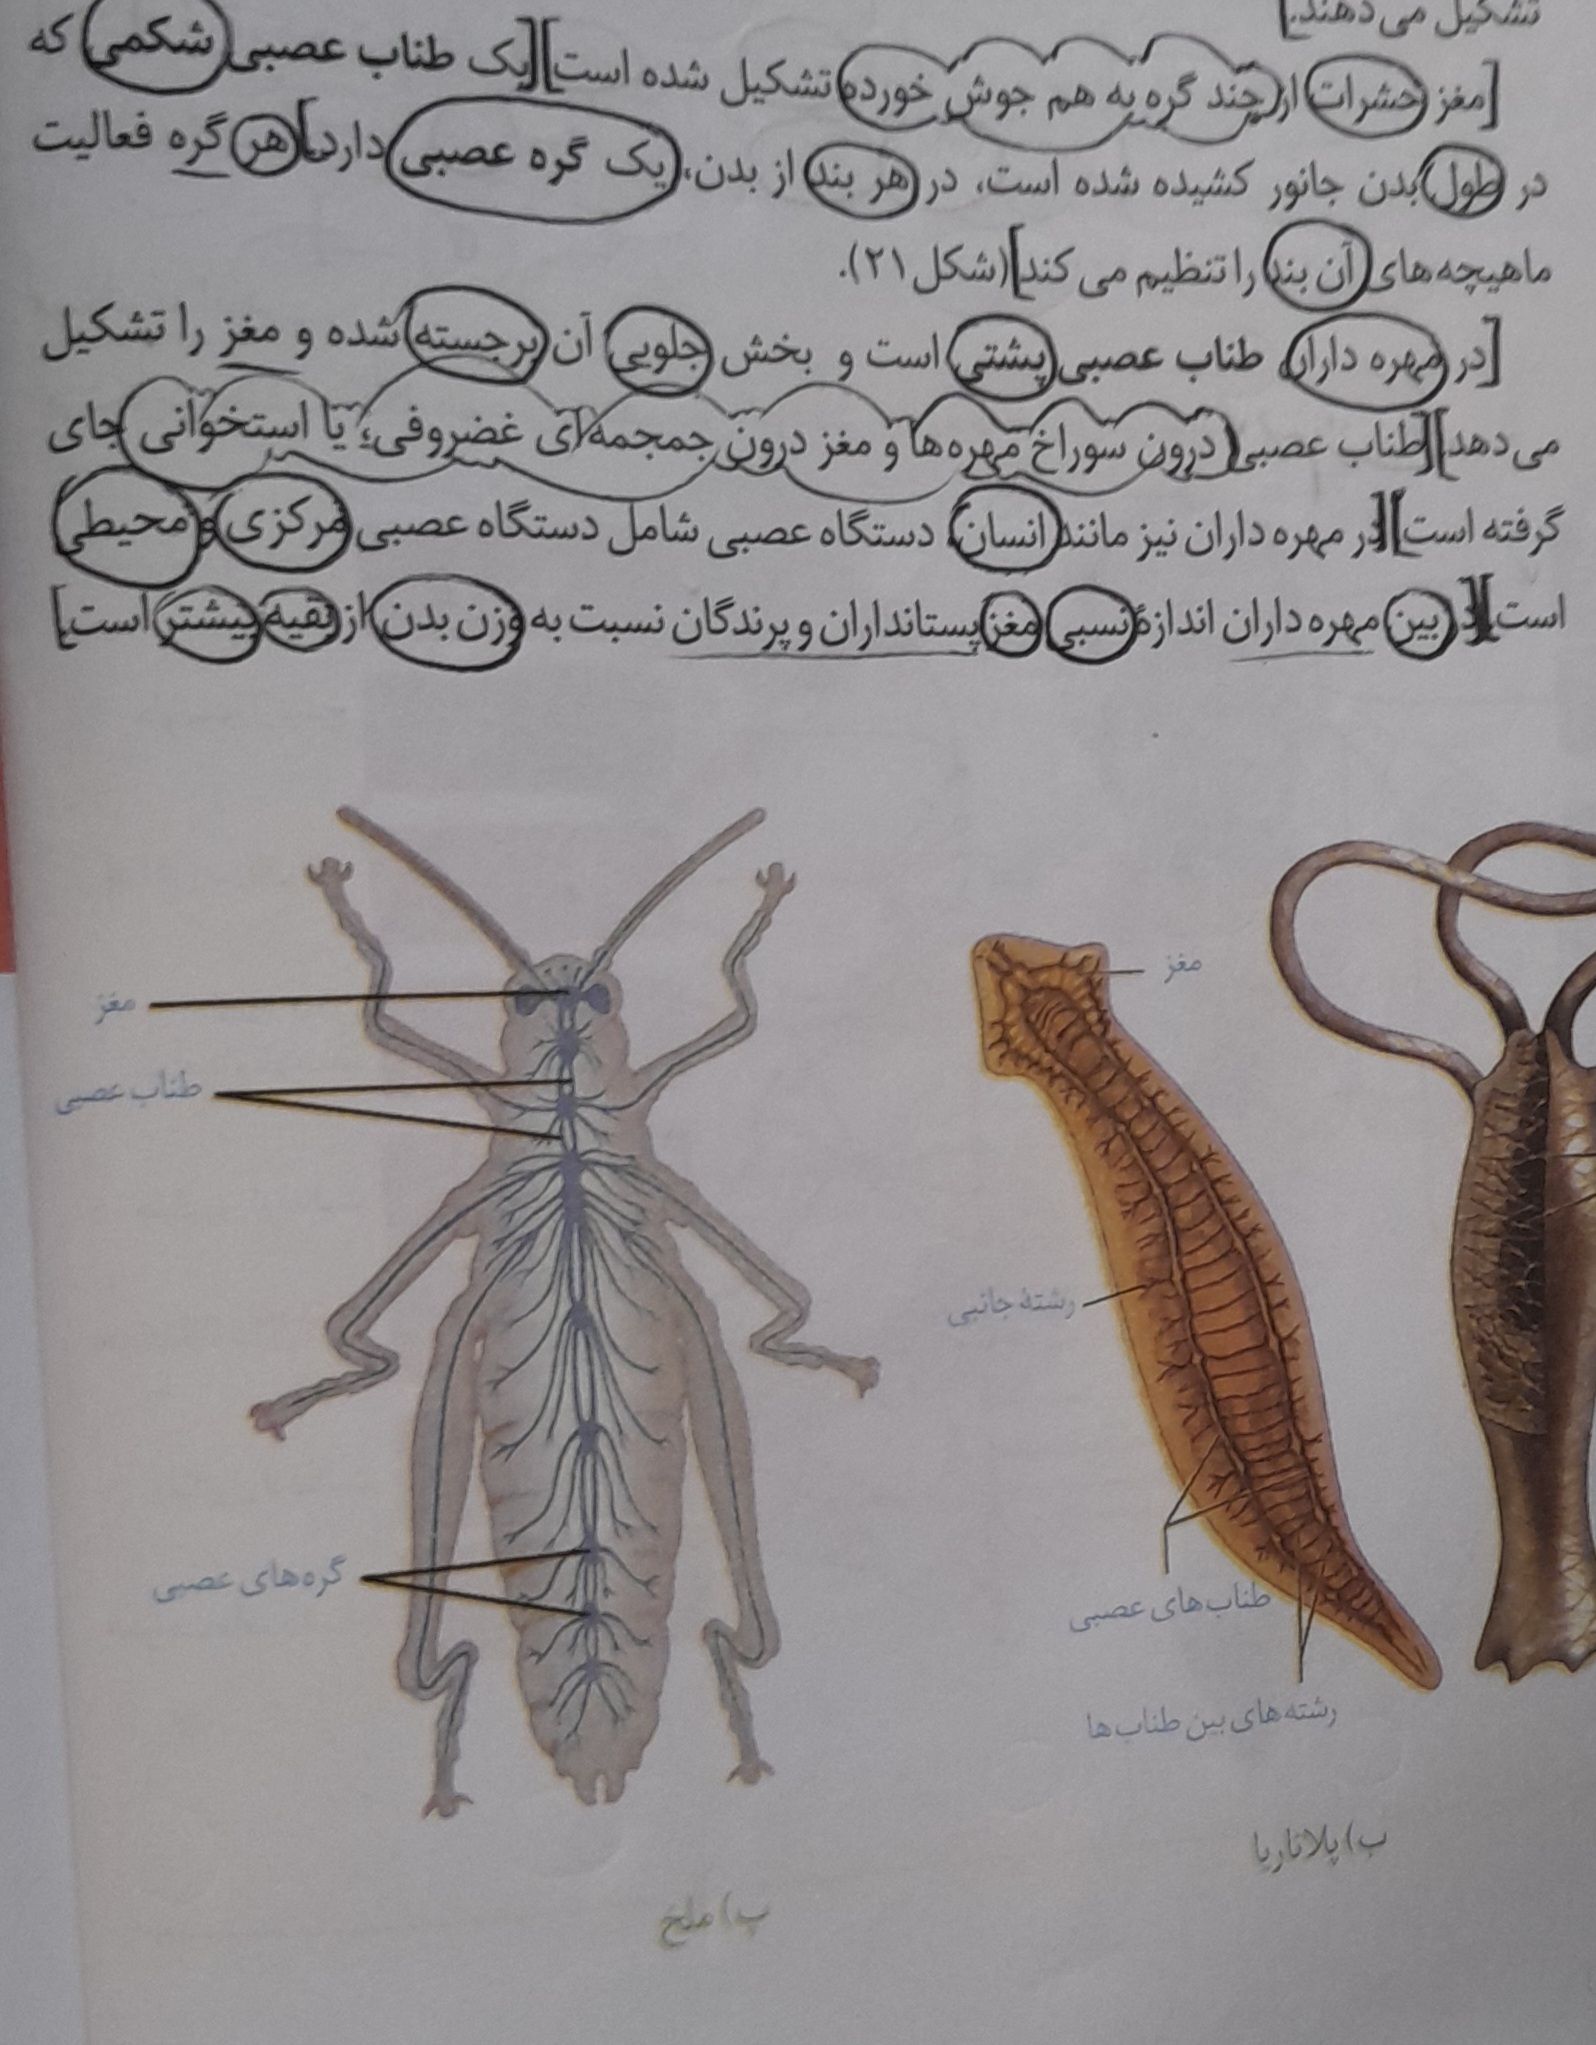 تشکیل می‌دهند.
مغز حشرات از چند گره به هم جوش خورده تشکیل شده است. یک طناب عصبی شکمی که
در طول بدن جانور کشیده شده است، در هر بند از بدن، یک گره عصبی دارد. هر گره فعالیت
ماهیچه‌های آن بند را تنظیم می کند (شکل ۲۱).
در مهره داران طناب عصبی پشتی است و بخش جلویی آن برجسته شده و مغز را تشکیل
می‌دهد. طناب عصبی درون سوراخ مهره‌ها و مغز درون جمجمه‌ای غضروفی، یا استخوانی جای
گرفته است. در مهره داران نیز مانند انسان، دستگاه عصبی شامل دستگاه عصبی مرکزی و محیطی
است. در بین مهره داران اندازهٔ نسبی مغز پستانداران و پرندگان نسبت به وزن بدن از بقیه بیشتر است.
مغز
مغز
طناب عصبی
رشتهٔ جانبی
گره‌های عصبی
طناب‌های عصبی
رشته‌های بین طناب‌ها
ب) پلاناریا
پ) ملخ